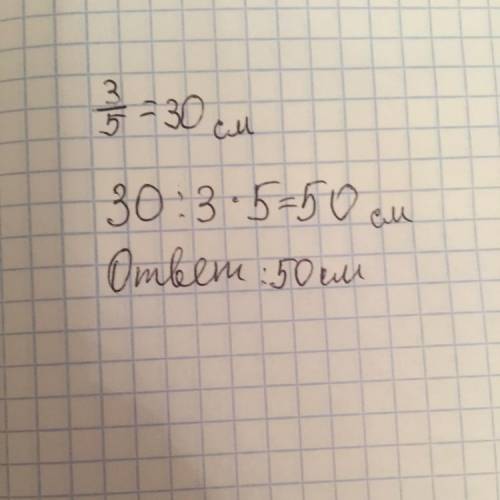 3/5 = 30 см
30 : 3 · 5 = 50 см
Ответ : 50 см